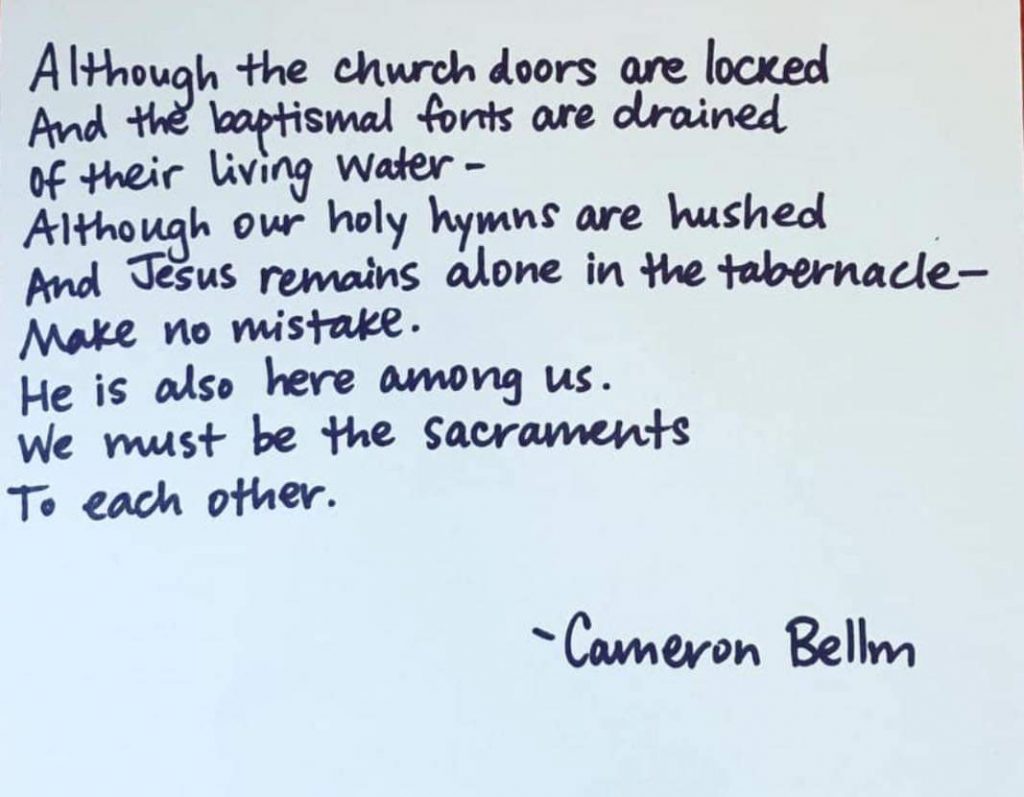 Although the church doors are locked
And the baptismal fonts are drained
Of their living water-
Although our holy hymns are hushed
And Jesus remains alone in the tabernacle-
Make no mistake.
He is also here among us.
We must be the sacraments
To each other.
~Cameron Bellm